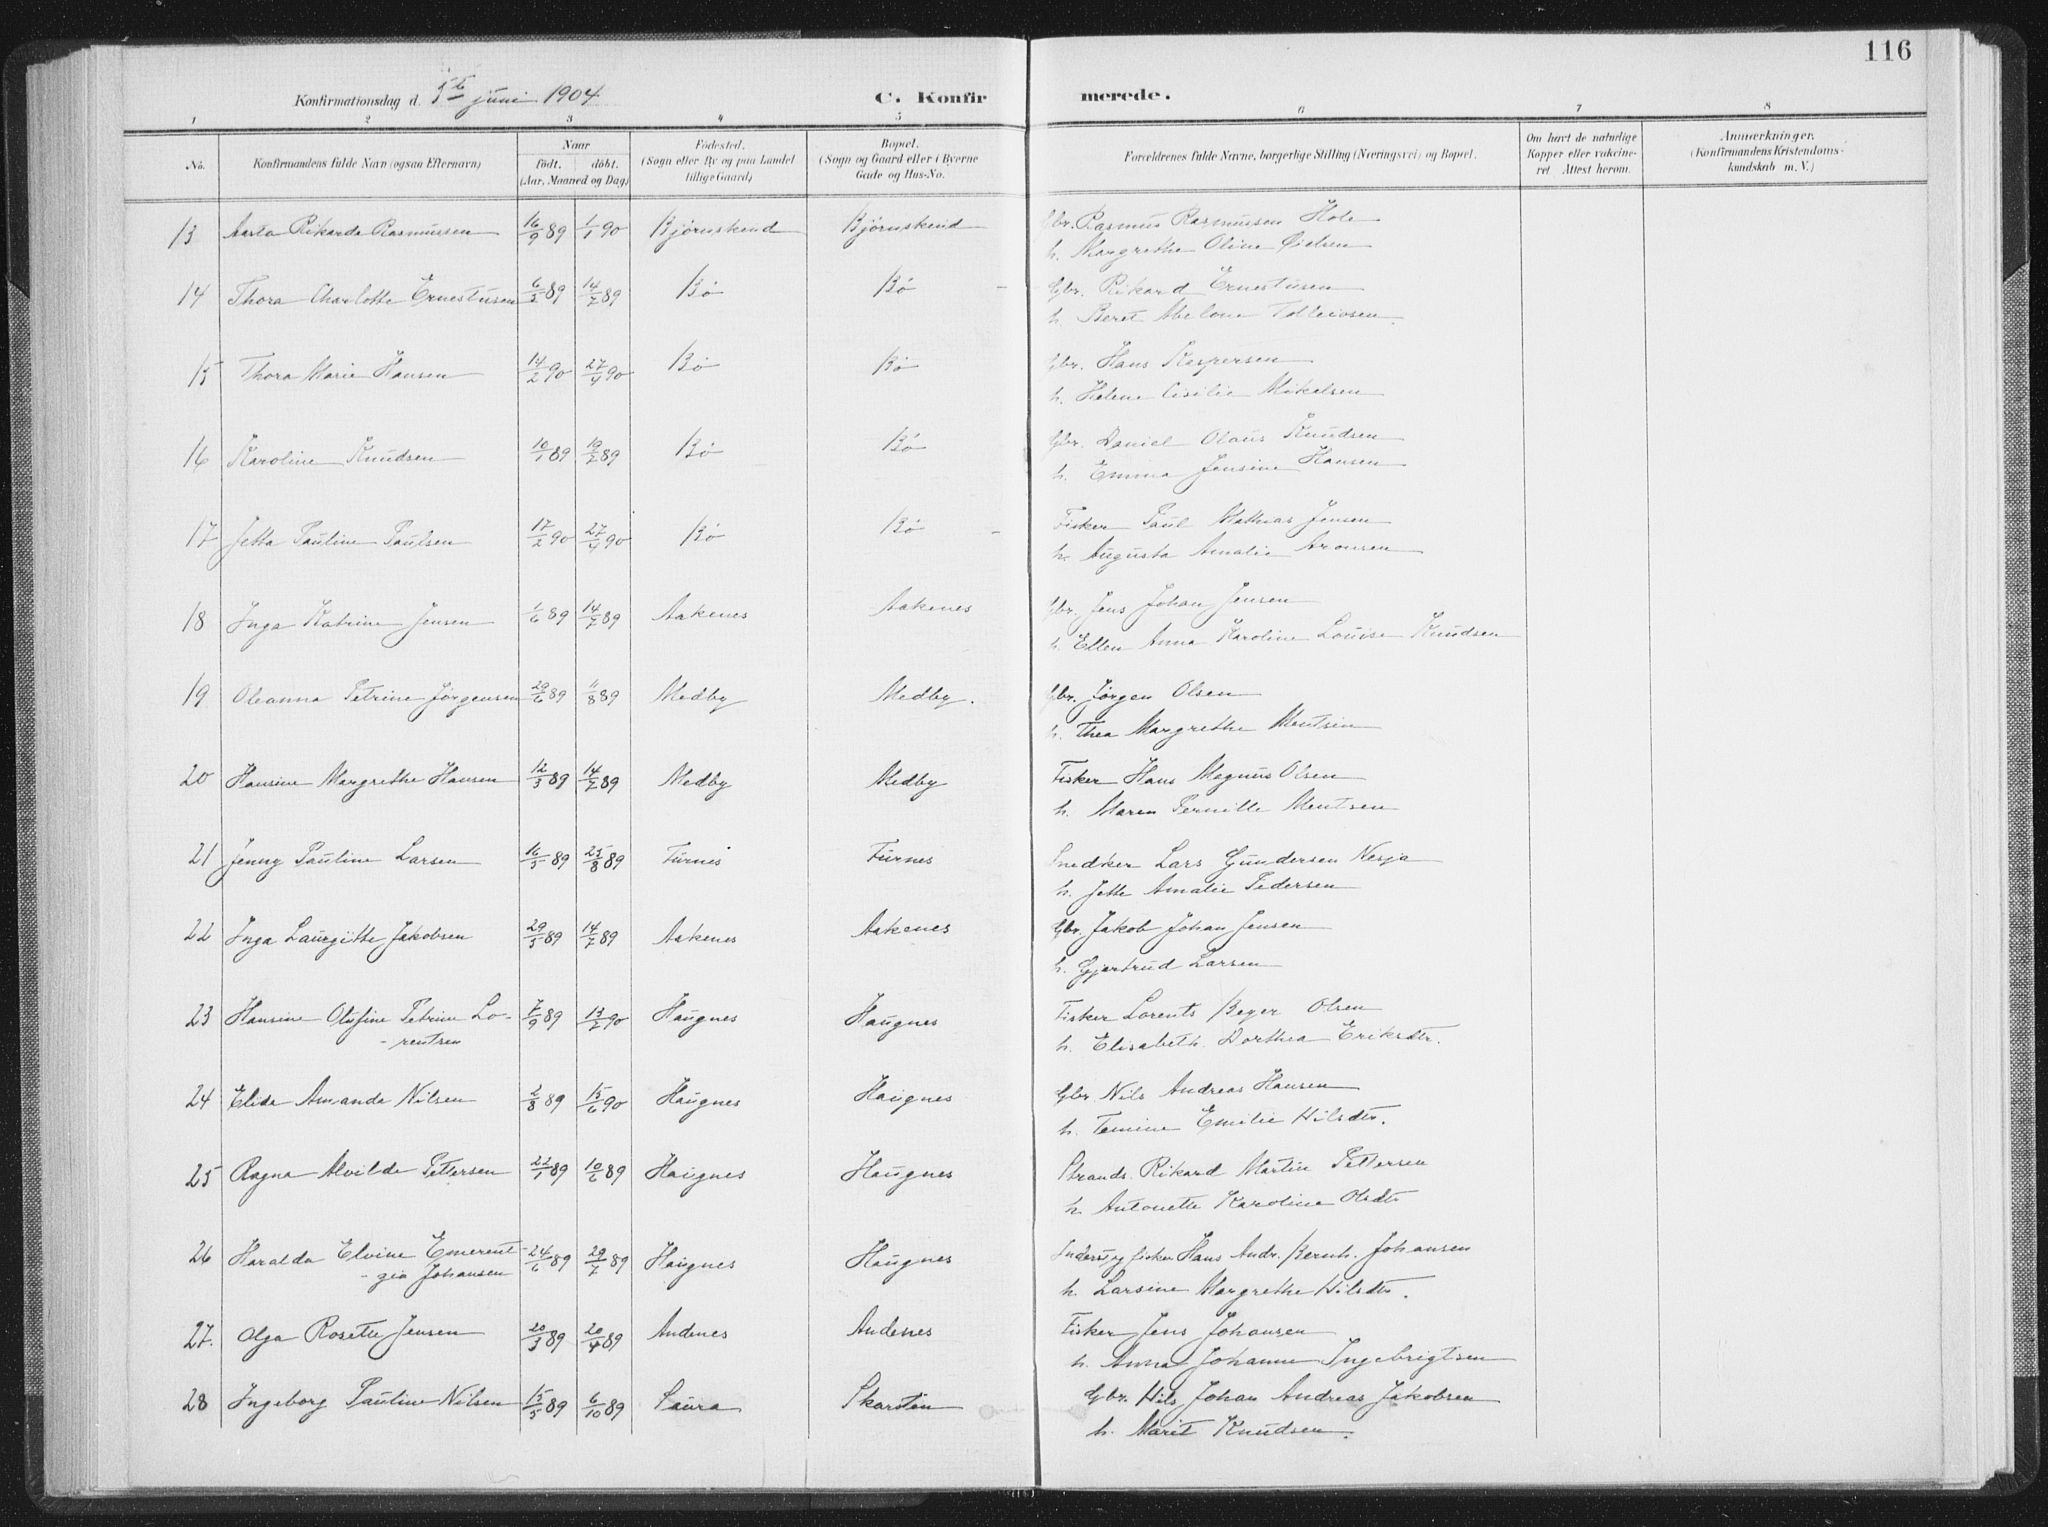 116
Konfirmationsdag d. 5te juni 1904
C. Konfirmerede.
1 2 3 4 5 6 7 8
No. Konfirmandens fulde Navn (ogsaa Efternavn) Naar født. døbt. (Aar, Maaned og Dag) Fødested. (Sogn eller By og paa Landet tillige Gaard) Bopæl. (Sogn og Gaard eller i Byerne Gade og Hus-No. Forældrenes fulde Navne, borgerlige Stilling (Næringsvei) og Bopæl. Om havt de naturlige Kopper eller vakcineret. Attest herom. Anmærkninger. (Konfirmandens Kristendomskundskab m. V.)
13 Aasta Rikarda Rasmussen 16/9 89 1/1 90 Bjørnskind Bjørnskind Gbr. Rasmus Rasmussen Hole
h. Margrethe Oline
14 Thora Charlotte Ernestusen 6/5 89 14/7 89 Bø Bø Gbr. Rikard Ernestusen
h. Beret Abelone Tolleivsen
15 Thora Marie Hansen 14/2 90 27/4 90 Bø Bø Gbr. Hans Kaspersen
h. Helene Cisilie Mikelsen
16 Karoline Knudsen 10/1 89 10/2 89 Bø Bø Gbr. Daniel Olaus Knudsen
h. Emma Jensine Hansen
17 Jetta Pauline Paulsen 17/2 90 27/4 90 Bø Bø Fisker Paul Mathias Jensen
h. Augusta Amalie Aronsen
18 Inga Katrine Jensen 1/6 89 14/7 89 Aakenes Aakenes Gbr. Jens Johan Jensen
h. Ellen Anna Karoline Louise Knudsen
19 Oleanna Petrine Jørgensen 29/6 89 11/8 89 Medby Medby. Gbr. Jørgen Olsen
h. Thea Margrethe Mentsen
20 Hansine Margrethe Hansen 12/3 89 14/7 89 Medby Medby Fisker Hans Magnus Olsen
h. Maren Pernille Mentsen
21 Jenny Pauline Larsen 16/5 89 25/8 89 Furnes Furnes Snedker Lars Gundersen Nesja
h. Jette Amalie Pedersen
22 Inga Laurgitte Jakobsen 29/5 89 14/7 89 Aakenes Aakenes Gbr. Jakob Johan Jensen
h. Gjertrud Larsen
23 Hansine Olufine Petrine Lo- 7/9 89 13/2 90 Haugnes Haugnes Fisker Lorents Beyer Olsen
- rentsen h. Elisabeth Dorthea Eriksdtr.
24 Elida Amanda Nilsen 2/8 89 15/6 90 Haugnes Haugnes Gbr Nils Andreas Hansen
h. Temine Emilie Nilsdtr.
25 Ragna Alvilde Pettersen 22/1 89 10/6 89 Haugnes Haugnes Strands. Rikard Martin Pettersen
h. Antonette Karoline Olsdtr
26 Haralda Elvine Emerent- 24/6 89 29/7 89 Haugnes Haugnes Inders. og fisker Hans Andr. Bernh. Johansen
- zia Johansen h. Larsine Margrethe Nilsdtr.
27. Olga Rosette Jensen 20/3 89 20/4 89 Andenes Andenes Fisker Jens Johansen
h. Anna Johanne Ingebrigtsen
28 Ingeborg Pauline Nilsen 15/5 89 6/10 89 Saura Skarstein Gbr. Nils Johan Andreas Jakobsen
h. Marit Knudsen.